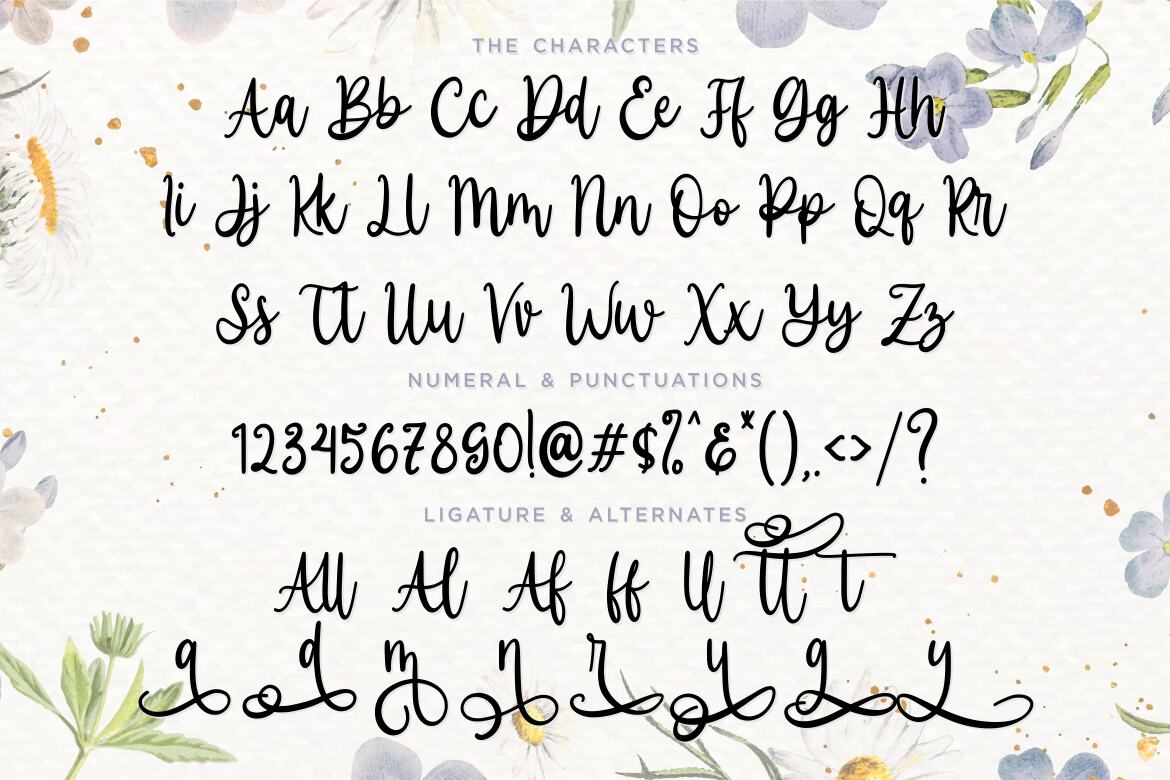 THE CHARACTERS
Aa Bb Cc Dd Ee Ff Gg Hh
Ii Jj Kk Ll Mm Nn Oo Pp Qq Rr
Ss Tt Uu Vv Ww Xx Yy Zz
NUMERAL & PUNCTUATIONS
1234567890!@#$%^&*(),.<>/?
LIGATURE & ALTERNATES
All Al Af ff ll tt t
a d m n r y g y